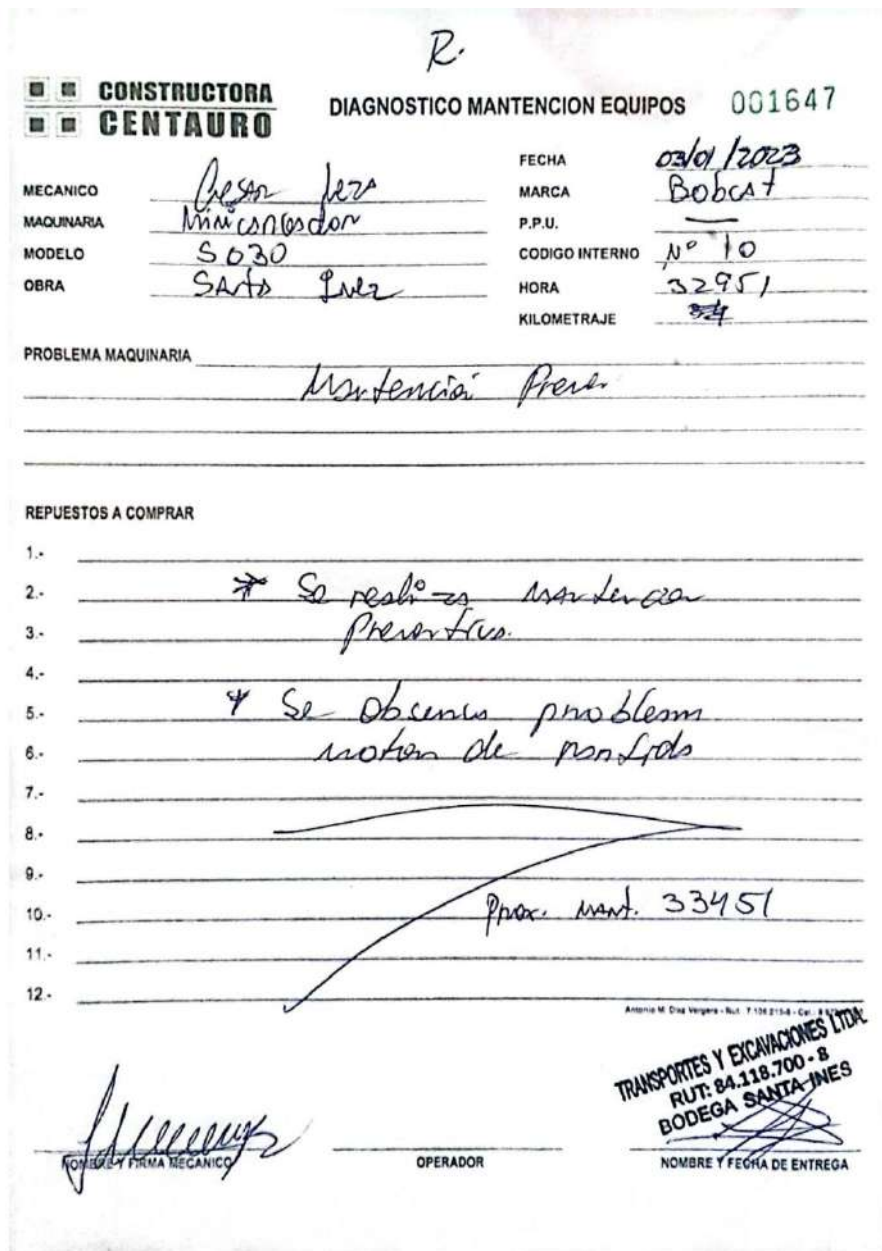 R.
CONSTRUCTORA
CENTAURO
DIAGNOSTICO MANTENCION EQUIPOS 001647
FECHA 03/01/2023
MECANICO Cesar
MARCA Bobcat
MAQUINARIA Minicargador
P.P.U. —
MODELO S630
CODIGO INTERNO Nº 10
OBRA Santa Inez
HORA 32951
KILOMETRAJE
PROBLEMA MAQUINARIA
Mantención Preven
REPUESTOS A COMPRAR
1.-
2.- * Se realiza mantencion
3.- Preventiva.
4.-
5.- * Se observa problema
6.- motor de partida
7.-
8.-
9.-
10.- Prox. Mant. 33451
11.-
12.-
Antonio M. Diaz Vergara - Rut.: 7.106.215-8 - Cel.:
TRANSPORTES Y EXCAVACIONES LTDA.
RUT: 84.118.700 - 8
BODEGA SANTA INES
NOMBRE Y FIRMA MECANICO
OPERADOR
NOMBRE Y FECHA DE ENTREGA